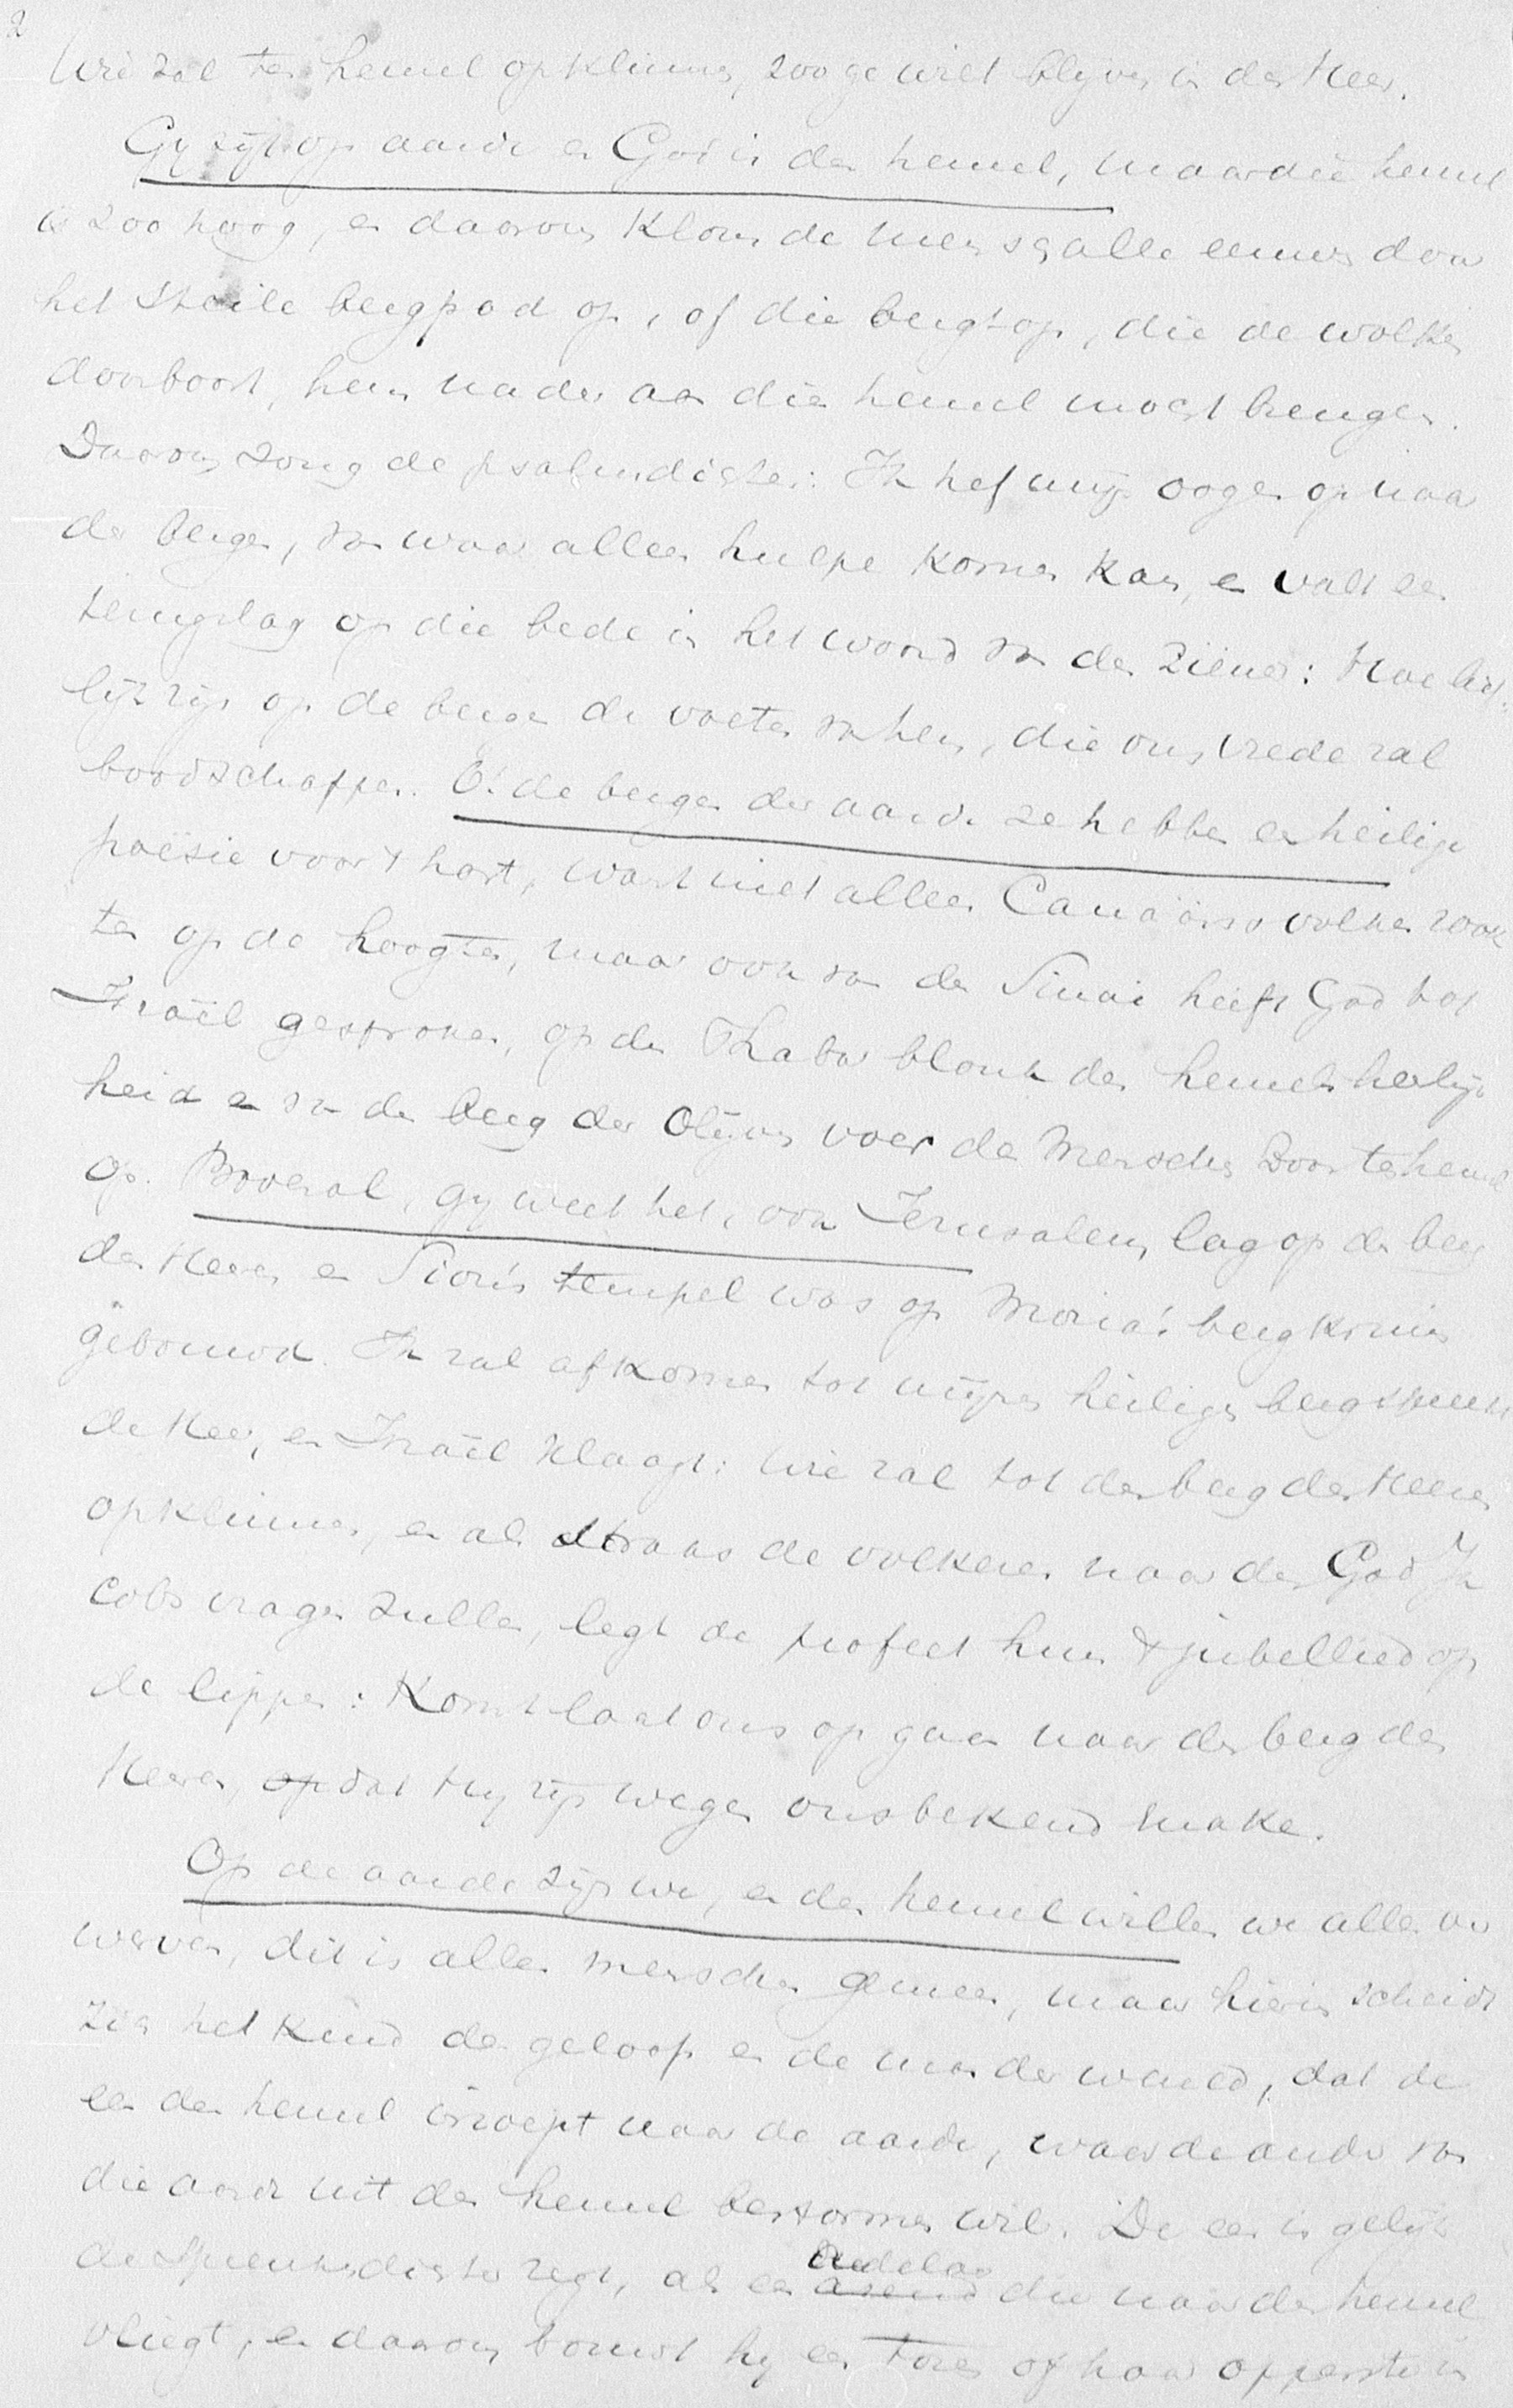 2
Wie zal ten hemel opklimmen, zoo ge wilt blijven in den Heer.
Gy zijt op aarde en God in den hemel, maar die hemel
is zoo hoog, en daarom klom de mensch alle eeuwen door
het steile bergpad op, of die bergtop, die de wolken
doorboort, hem nader aan dien hemel mocht brengen.
Daarom zong de psalmdichter: Ik hef mijn oogen op naar
de bergen, van waar alleen hulpe komen kan, en valt een
terugslag op die bede in het woord van den Ziener: Hoe lief-
lijk zijn op de bergen de voeten van hen, die ons vrede zal
boodschappen. O! de bergen der aarde ze hebben een heilige
poësie voor 't hart, want niet alleen Canaäns volken rook
ten op de hoogten, maar ook van den Sinai heeft God tot
Israël gesproken, op den Thabor blonk des hemels heerlijk
heid en van den berg der Olijven voer de Menschen Zoon ten hemel
op. Bovenal, gy weet het, ook Jerusalem lag op den berg
des Heeren en Sions tempel was op Moria's bergkruin
gebouwd. Ik zal afkomen tot mijnen heiligen berg spreekt
de Heer, en Israël klaagt: wie zal tot den berg des Heeren
opklimmen, en als straks de volkeren naar den God Ja
cobs vragen zullen, legt de profeet hun 't jubellied op
de lippen: Komt laat ons op gaan naar den berg des
Heeren, opdat Hy zijn wegen ons bekend make.
Op de aarde zijn we, en den hemel willen we allen ver
werven, dit is allen menschen gemeen, maar hierin scheidt
zich het kind des geloofs en de man der wereld, dat de
een den hemel inroept naar de aarde, waar de ander van
die aarde uit den hemel bestormen wil. De een is gelijk
de Spreukendichter zegt, als een arend Adelaar die naar den hemel
vliegt, en daarom bouwt hy een toren of haar opperste in